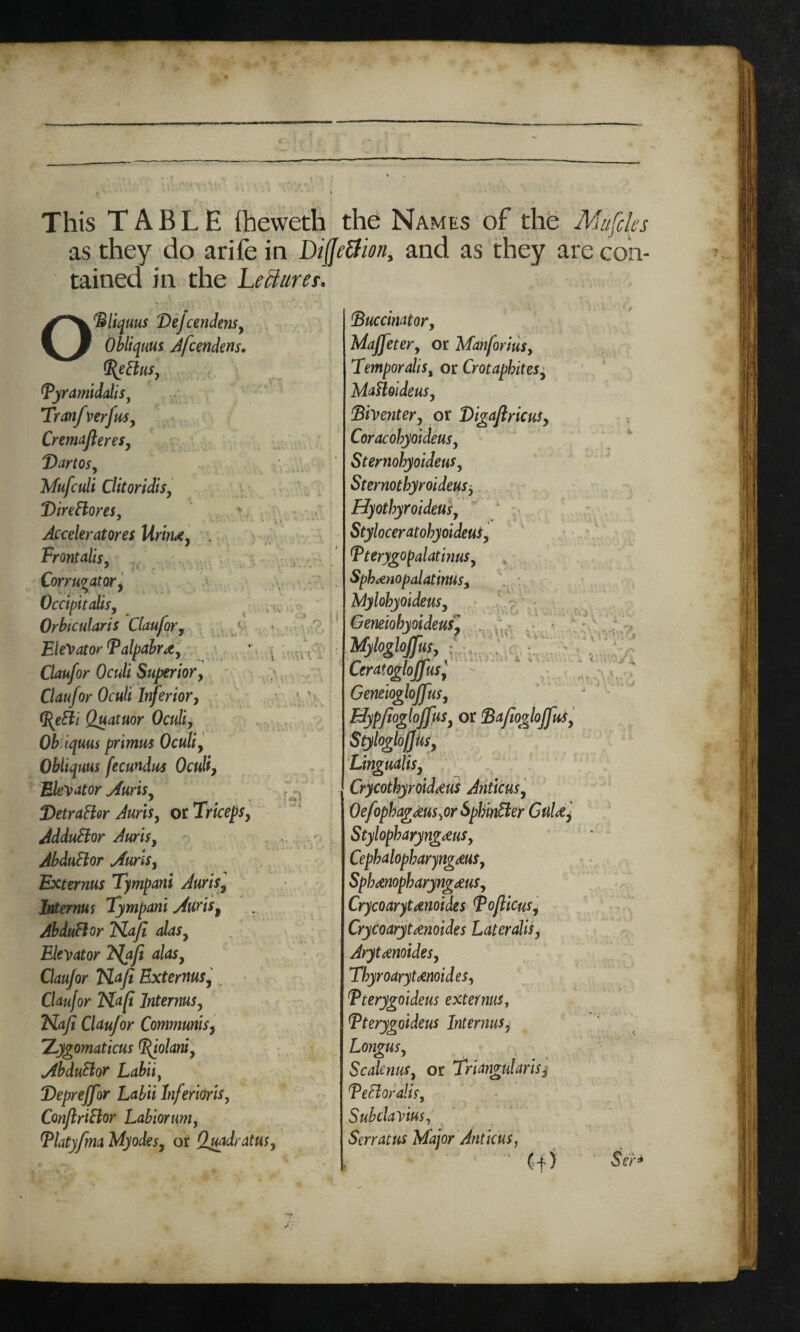 This TABLE ſheweth the Names of the Muſcles
as they do ariſe in Diſſection, and as they are con-
tained in the Lectures.
OBliquus Deſcendens,
Obliquus Aſcendens.
Rectus,
Pyramidalis,
Tranſverſus,
Cremaſteres,
Dartos,
Muſculi Clitoridis,
Directores,
Acceleratores Urinæ,
Frontalis,
Corrugator,
Occipitalis,
Orbicularis Clauſor,
Elevator Palpabræ,
Clauſor Oculi Superior,
Clauſor Oculi Inferior,
Recti Quatuor Oculi,
Obliquus primus Oculi,
Obliquus ſecundus Oculi,
Elevator Auris,
Detractor Auris, or Triceps,
Adductor Auris,
Abductor Auris,
Externus Tympani Auris,
Internus Tympani Auris,
Abductor Naſi alas,
Elevator Naſi alas,
Clauſor Naſi Externus,
Clauſor Naſi Internus,
Naſi Clauſor Communis,
Zygomaticus Riolani,
Abductor Labii,
Depreſſor Labii Inferioris,
Conſtrictor Labiorum,
Platyſma Myodes, or Quadratus,
Buccinator,
Maſſeter, or Manſorius,
Temporalis, or Crotaphites,
Maſtoideus,
Biventer, or Digaſtricus,
Coracohyoideus,
Sternohyoideus,
Sternothyroideus,
Hyothyroideus,
Styloceratohyoideus,
Pterygopalatinus,
Sphænopalatinus,
Mylohyoideus,
Geneiohyoideus,
Mylogloſſus,
Ceratogloſſus,
Geneiogloſſus,
Hypſiogloſſus, or Baſiogloſſus,
Stylogloſſus,
Lingualis,
Crycothyroidæus Anticus,
Oeſophagæus, or Sphincter Gulæ,
Stylopharyngæus,
Cephalopharyngæus,
Sphænopharyngæus,
Crycoarytænoides Poſticus,
Crycoarytænoides Lateralis,
Arytænoides,
Thyroarytænoides,
Pterygoideus externus,
Pterygoideus Internus,
Longus,
Scalenus, or Triangularis,
Pectoralis,
Subclavius,
Serratus Major Anticus,
(†) Ser-